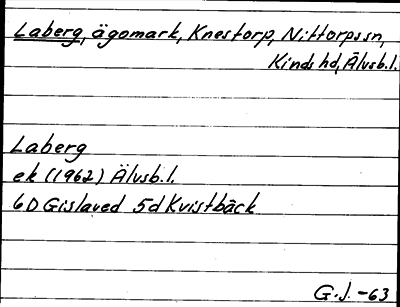 Laberg, ägomark, Knestorp, Nittorpssn,
Kinds hd, Älvsb.l.
Laberg
ek (1962) Älvsb.l.
6D Gislaved 5d Kvistbäck
G.J. -63